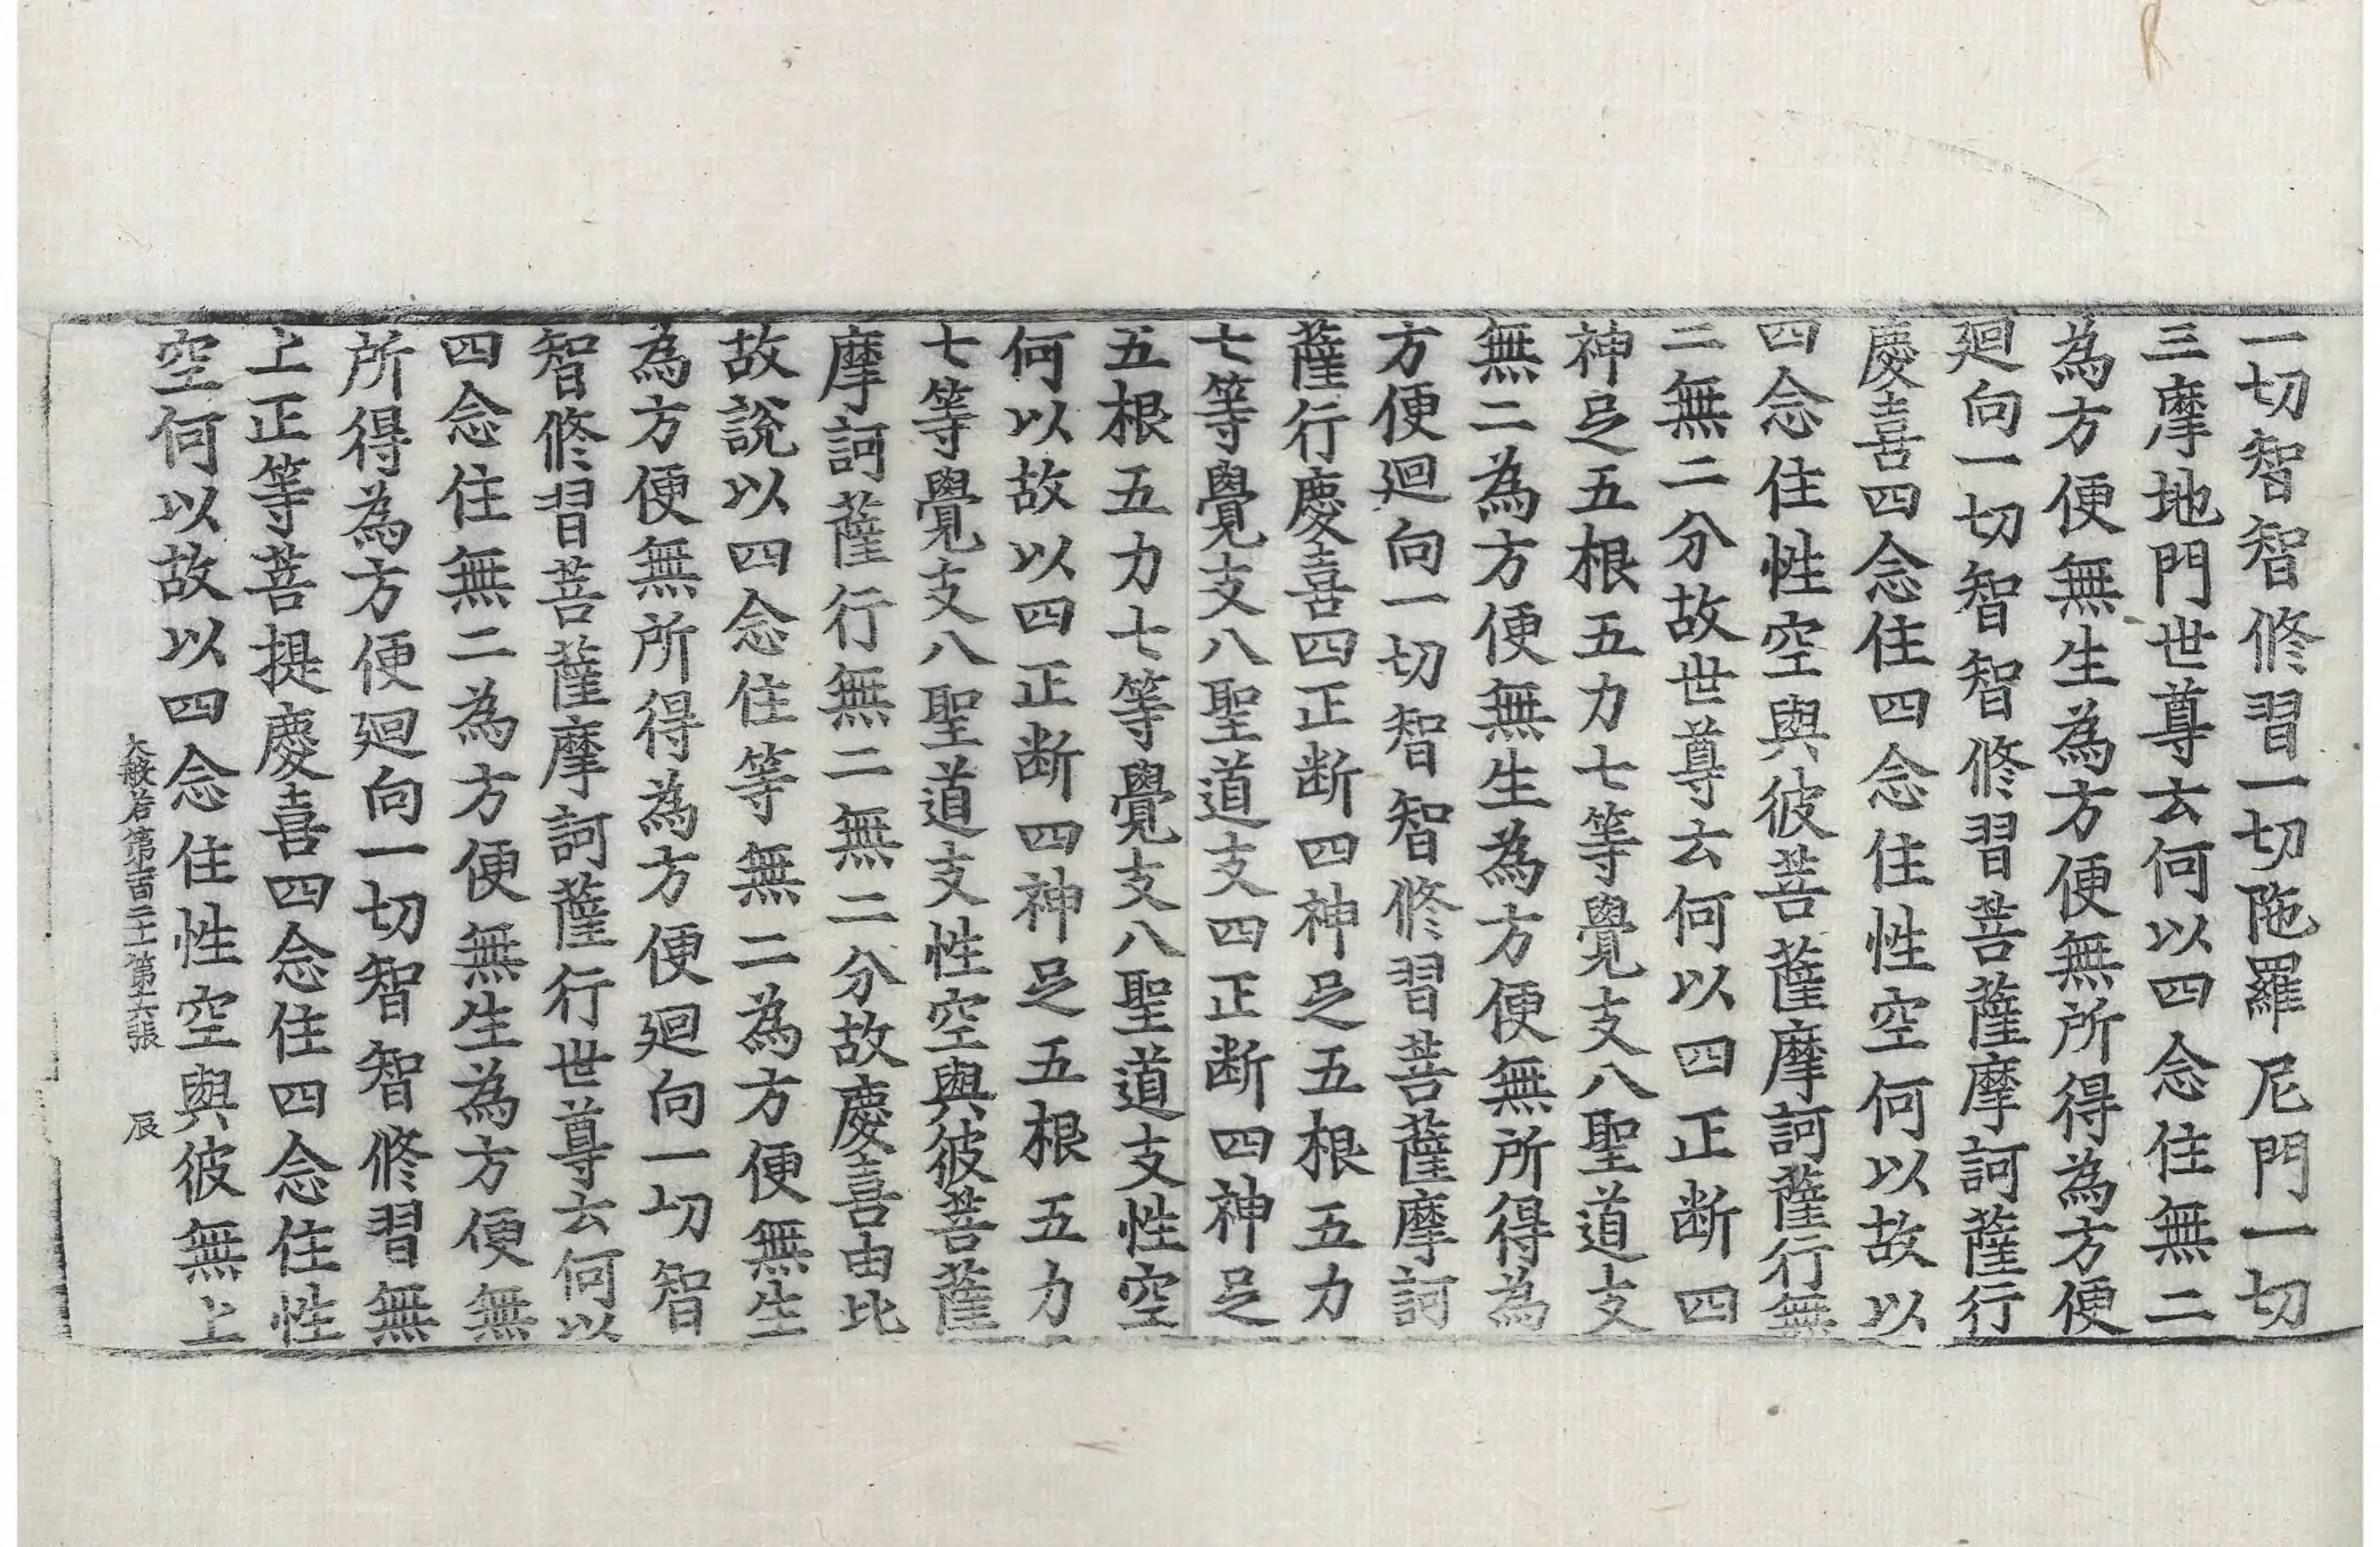 一切智智修習一切陁羅尼門一切
三摩地門世尊云何以四念住無二
為方便無生為方便無所得為方便
廻向一切智智修習菩薩摩訶薩行
慶喜四念住四念住性空何以故以
四念住性空與彼菩薩摩訶薩行無
二無二分故世尊云何以四正断四
神足五根五力七等覺支八聖道支
無二為方便無生為方便無所得為
方便廻向一切智智修習菩薩摩訶
薩行慶喜四正断四神足五根五力
七等覺支八聖道支四正断四神足
五根五力七等覺支八聖道支性空
何以故以四正断四神足五根五力
七等覺支八聖道支性空與彼菩薩
摩訶薩行無二無二分故慶喜由此
故說以四念住等無二為方便無生
為方便無所得為方便廻向一切智
智修習菩薩摩訶薩行世尊云何以
四念住無二為方便無生為方便無
所得為方便廻向一切智智修習無
上正等菩提慶喜四念住四念住性
空何以故以四念住性空與彼無上
大般若第一百二十一 第十六張 辰